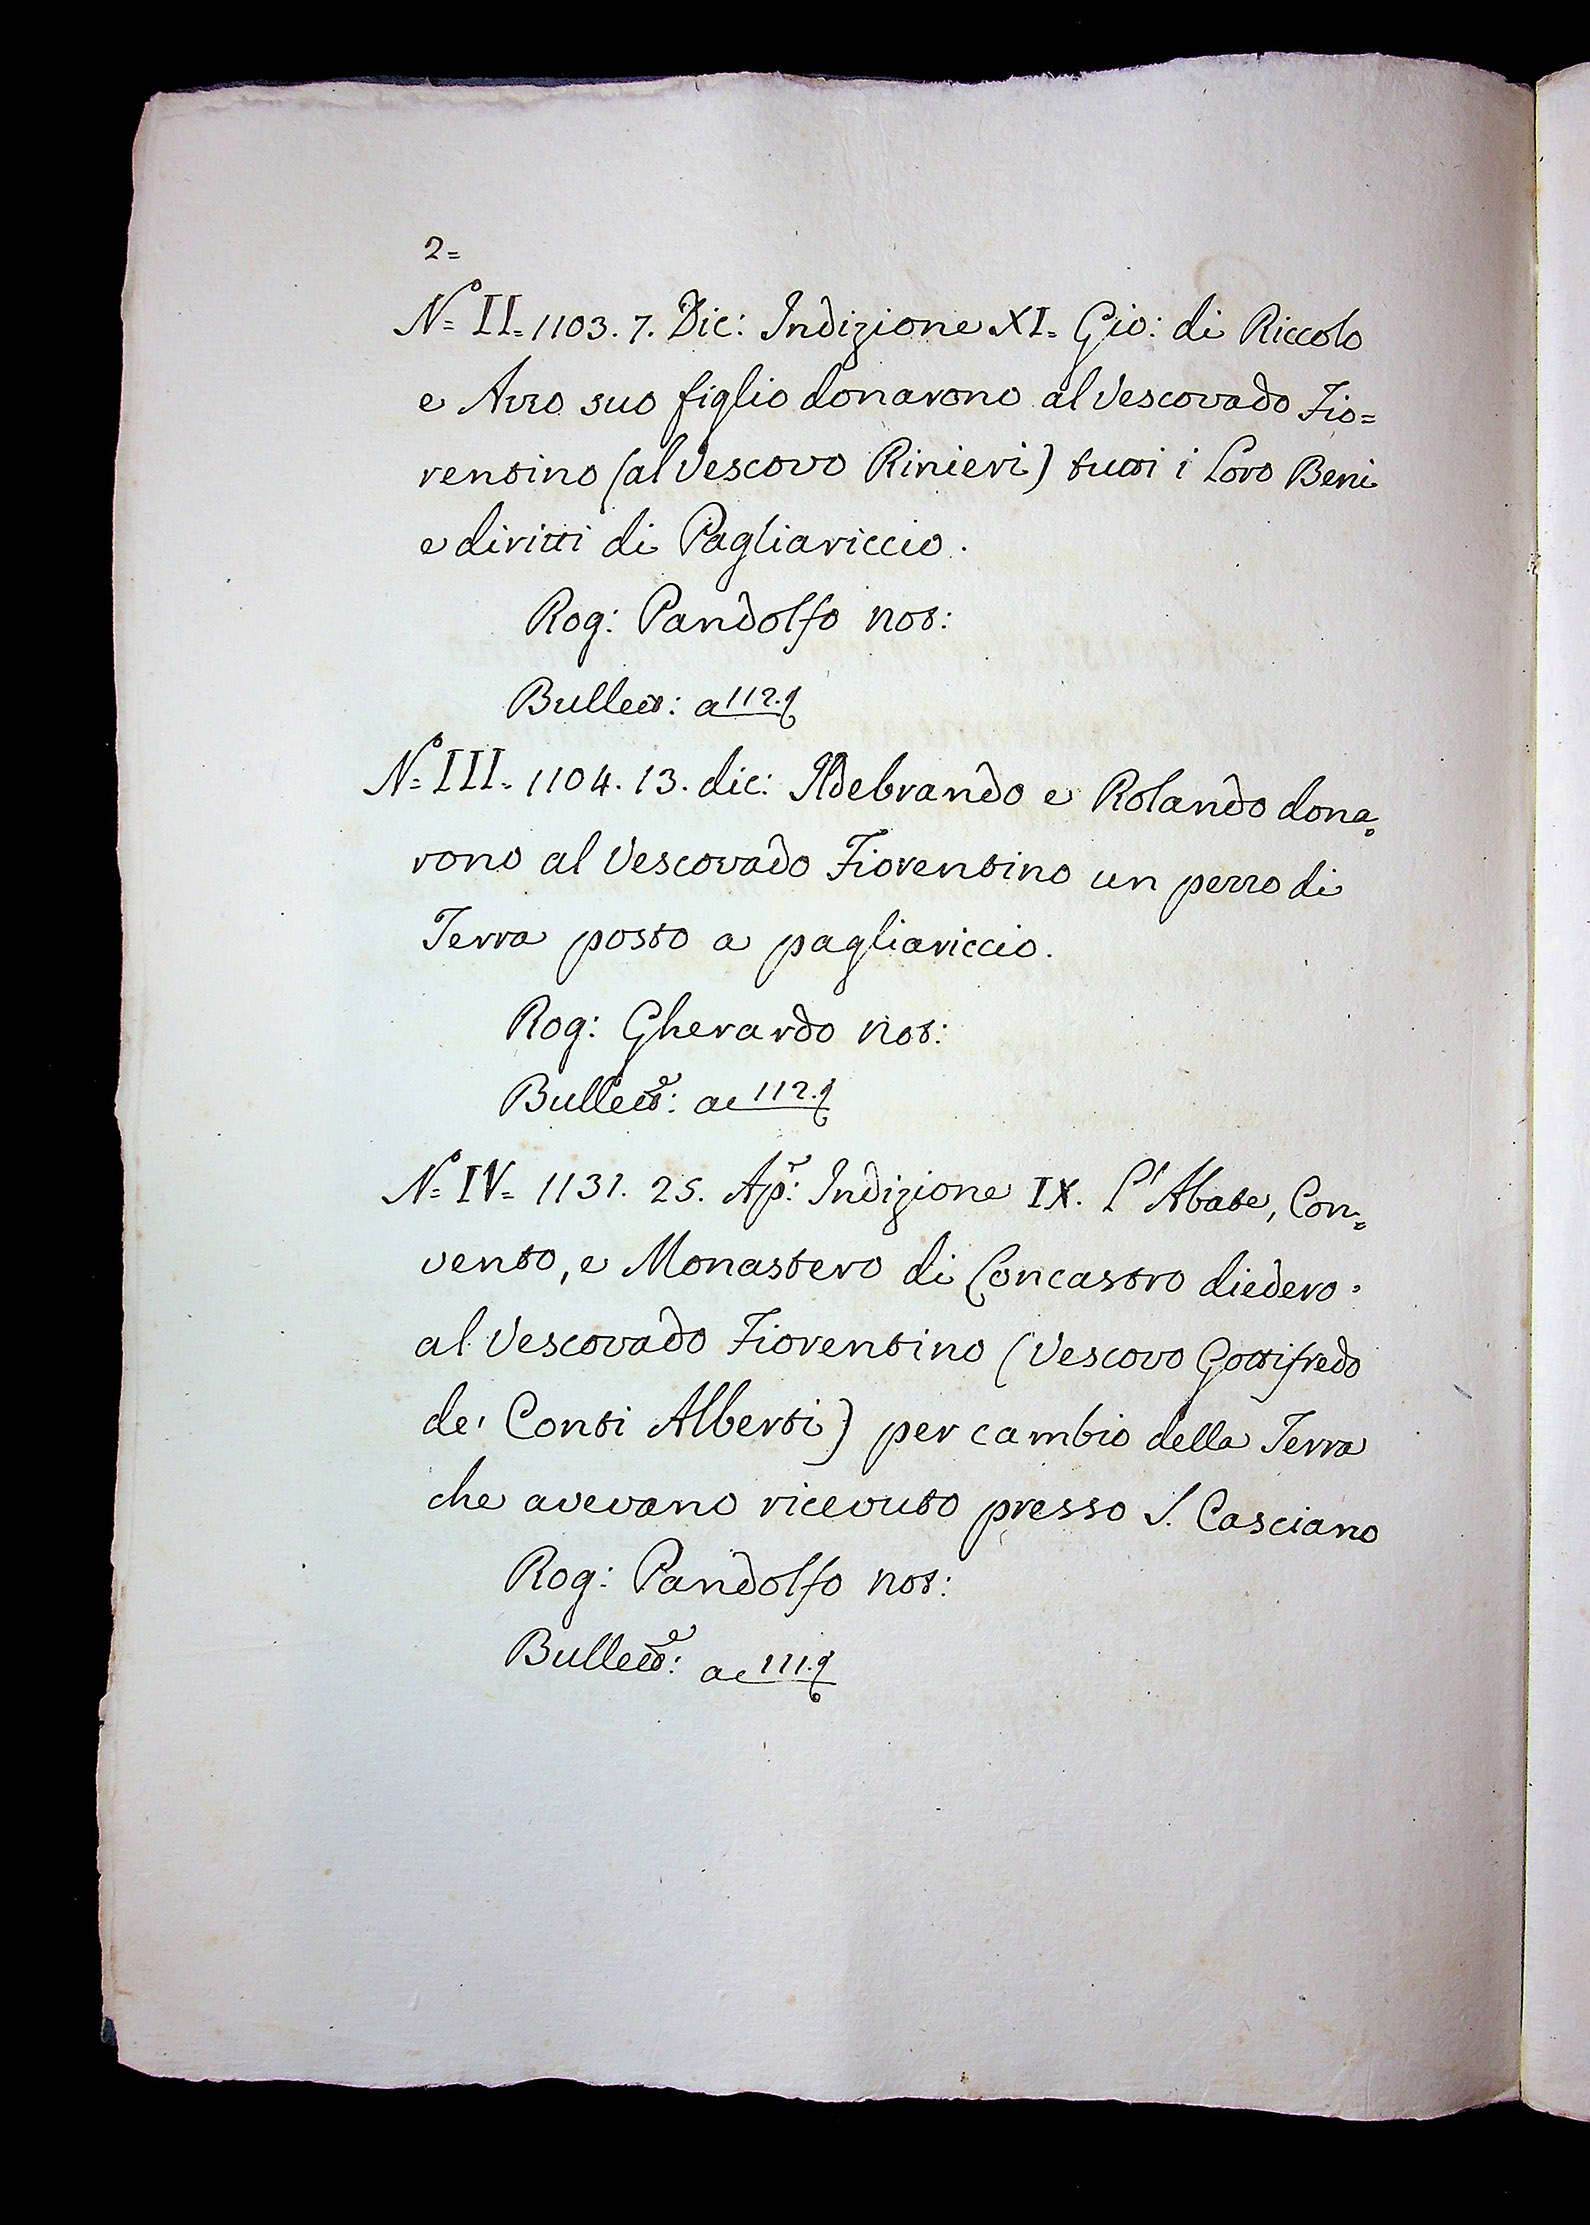 2=
N.º II. 1103. 7. Dic: Indizione XI. Gio: di Riccolo
e Azzo suo figlio donarono al Vescovado Fio=
rentino (al Vescovo Rinieri) tutti i Loro Beni
e diritti di Pagliariccio.
Rog: Pandolfo not:
Bullett: a 112.
N.º III. 1104. 13. dic: Ildebrando e Rolando dona=
rono al Vescovado Fiorentino un pezzo di
Terra posto a pagliariccio.
Rog: Gherardo not:
Bullett.e: ac 112.
N.º IV= 1131. 25. Ap.r: Indizione IX. L'Abate, Con=
vento, e Monastero di Concastro diedero
al Vescovado Fiorentino (Vescovo Gottifredo
de' Conti Alberti) per cambio della Terra
che avevano ricevuto presso S. Casciano
Rog: Pandolfo not:
Bullett.e: ac 111.